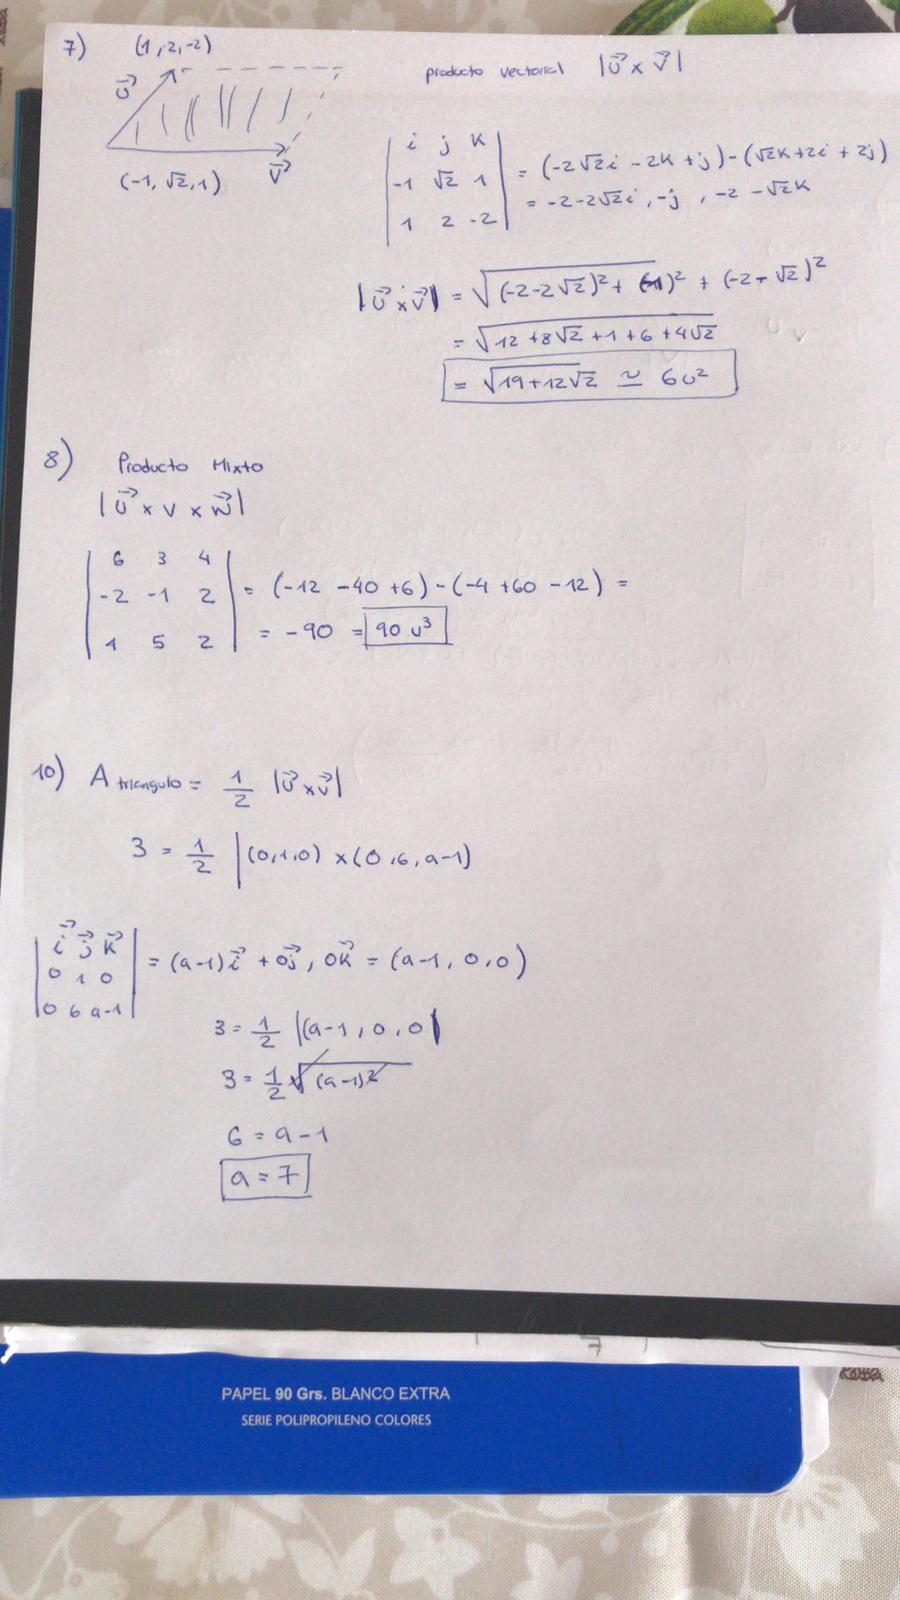 7) (1,2,-2)
producto vectorial |u⃗ x v⃗|
u⃗
(-1, √2, 1) v⃗
| i j k |
| -1 √2 1 | = (-2√2i - 2k + j) - (√2k + 2i + 2j)
| 1 2 -2 | = -2-2√2i, -j, -2 -√2k
|u⃗ x v⃗| = √(-2-2√2)² + (-1)² + (-2-√2)²
= √12 + 8√2 + 1 + 6 + 4√2
= √19+12√2 ≃ 6u²
8) Producto Mixto
|u⃗ x v x w⃗|
| 6 3 4 |
| -2 -1 2 | = (-12 -40 +6) - (-4 +60 -12) =
| 1 5 2 | = -90 = 90 u³
10) A triangulo = 1/2 |u⃗ x v⃗|
3 = 1/2 |(0,1,0) x (0,6,a-1)
| i⃗ j⃗ k⃗ |
| 0 1 0 | = (a-1)i⃗ + 0j⃗, 0k⃗ = (a-1, 0, 0)
| 0 6 a-1 |
3 = 1/2 |(a-1, 0, 0|
3 = 1/2 √(a-1)²
6 = a-1
a = 7
7
PAPEL 90 Grs. BLANCO EXTRA
SERIE POLIPROPILENO COLORES